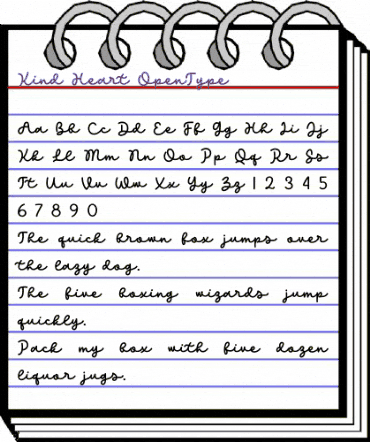 Kind Heart OpenType
Aa Bb Cc Dd Ee Ff Gg Hh Ii Jj
Kk Ll Mm Nn Oo Pp Qq Rr Ss
Tt Uu Vv Ww Xx Yy Zz 1 2 3 4 5
6 7 8 9 0
The quick brown fox jumps over
the lazy dog.
The five boxing wizards jump
quickly.
Pack my box with five dozen
liquor jugs.